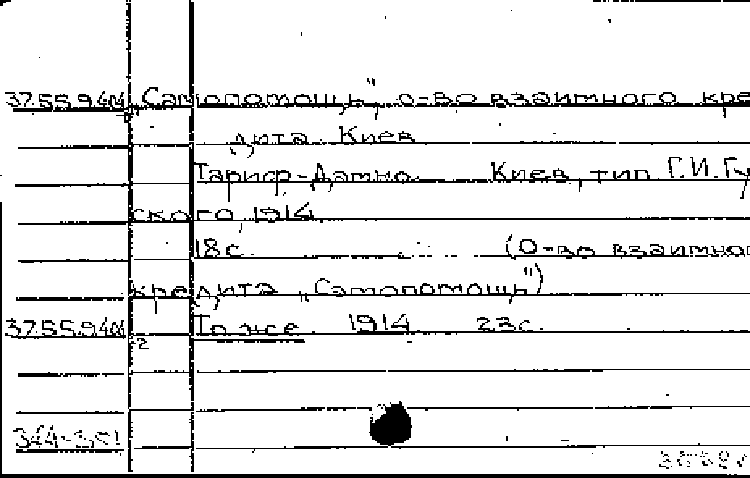 37.55.9.404 „Самопомощь", о-во взаимного кре
дита. Киев
Тариф- Киев, тип. Г.И.Гу
ского, 1914.
18с. (О-во взаимног
кредита „Самопомощь")
37.55.9.404 То же. 1914. 23с.
2